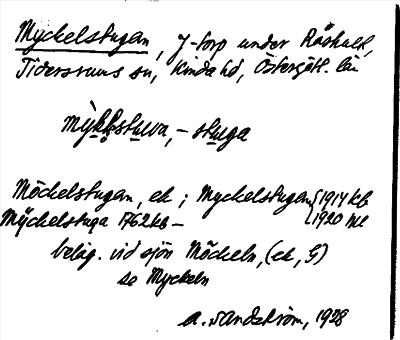 Myckelstugan, f-torp under Råshult,
Tidersrums sn, Kinda hd, Östergötl. län
mỳkkstuva, - stuga
Möckelstugan, ek; Myckelstugan {1914 kb
Mÿckelstuga 1762 kb – {1920
beläg. vid sjön Möckeln, (ek, G)
se Myckeln
A. Sandström, 1928